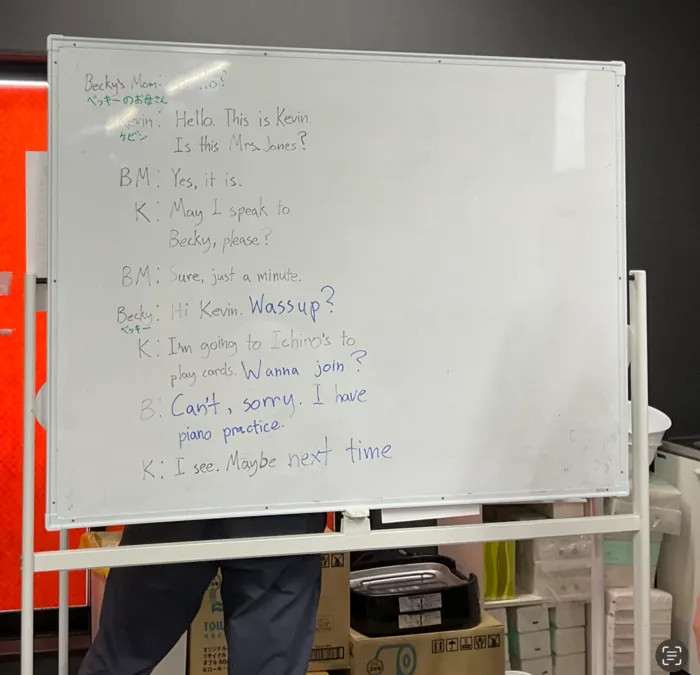 Becky's Mom:
ベッキーのお母さん
Kevin: Hello. This is Kevin.
ケビン
Is this Mrs. Jones?
BM: Yes, it is.
K: May I speak to
Becky, please?
BM: Sure, just a minute.
Becky: Hi Kevin. Wassup?
ベッキー
K: I'm going to Ichiro's to
play cards. Wanna join?
B: Can't, sorry. I have
piano practice.
K: I see. Maybe next time